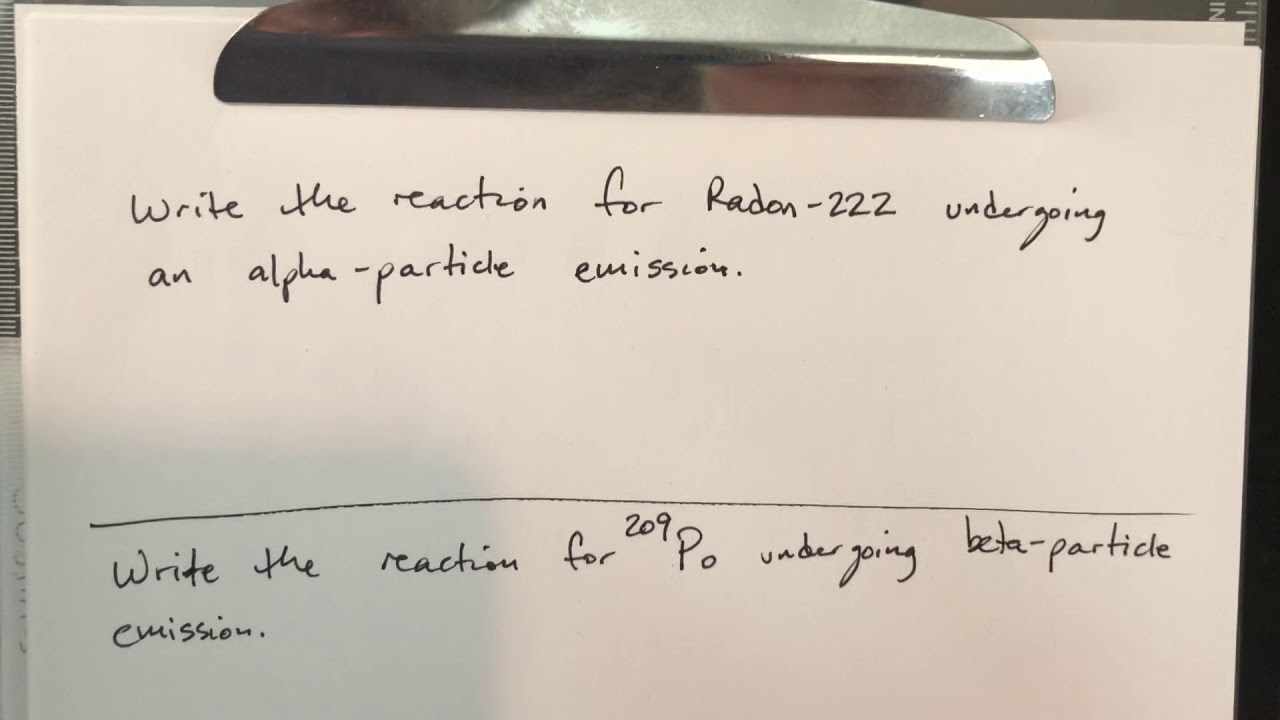 Write the reaction for Radon-222 undergoing
an alpha-particle emission.
Write the reaction for ²⁰⁹Po undergoing beta-particle
emission.